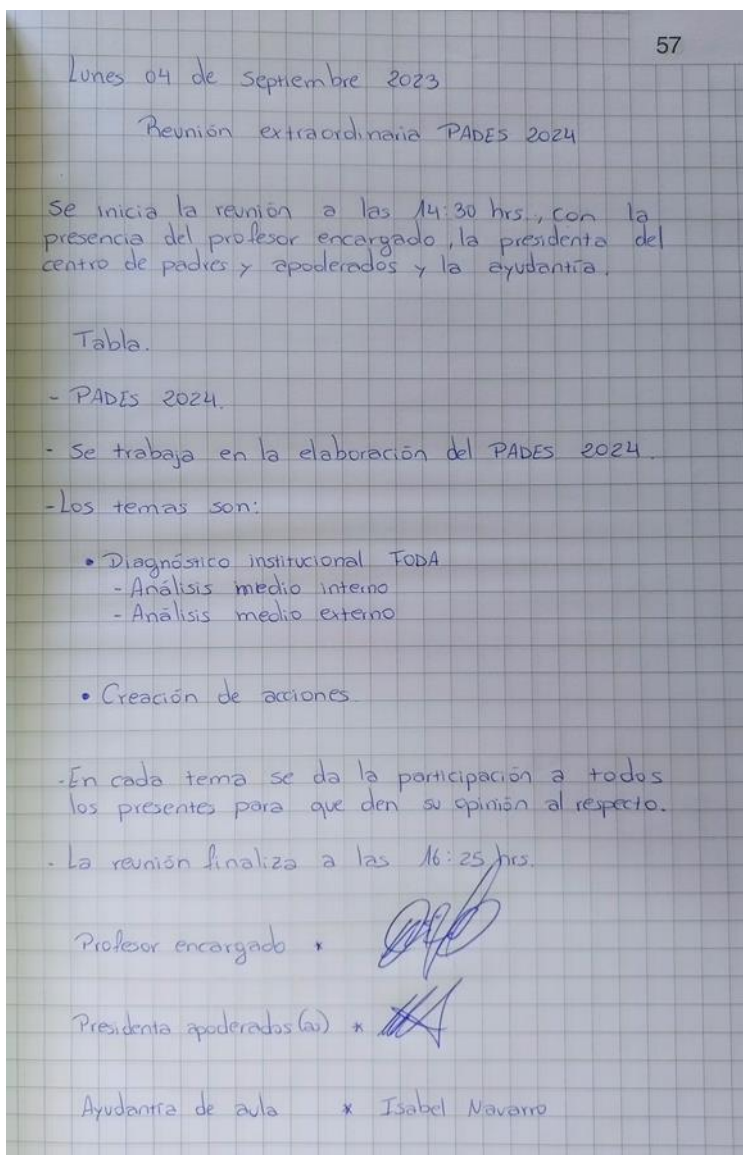 57
Lunes 04 de Septiembre 2023
Reunión extraordinaria PADES 2024
Se inicia la reunión a las 14:30 hrs., con la
presencia del profesor encargado, la presidenta del
centro de padres y apoderados y la ayudantía.
Tabla.
- PADES 2024.
- Se trabaja en la elaboración del PADES 2024.
- Los temas son:
• Diagnóstico institucional FODA
- Análisis medio interno
- Análisis medio externo
• Creación de acciones.
- En cada tema se da la participación a todos
los presentes para que den su opinión al respecto.
- La reunión finaliza a las 16:25 hrs.
Profesor encargado *
Presidenta apoderados(as) *
Ayudantía de aula * Isabel Navarro